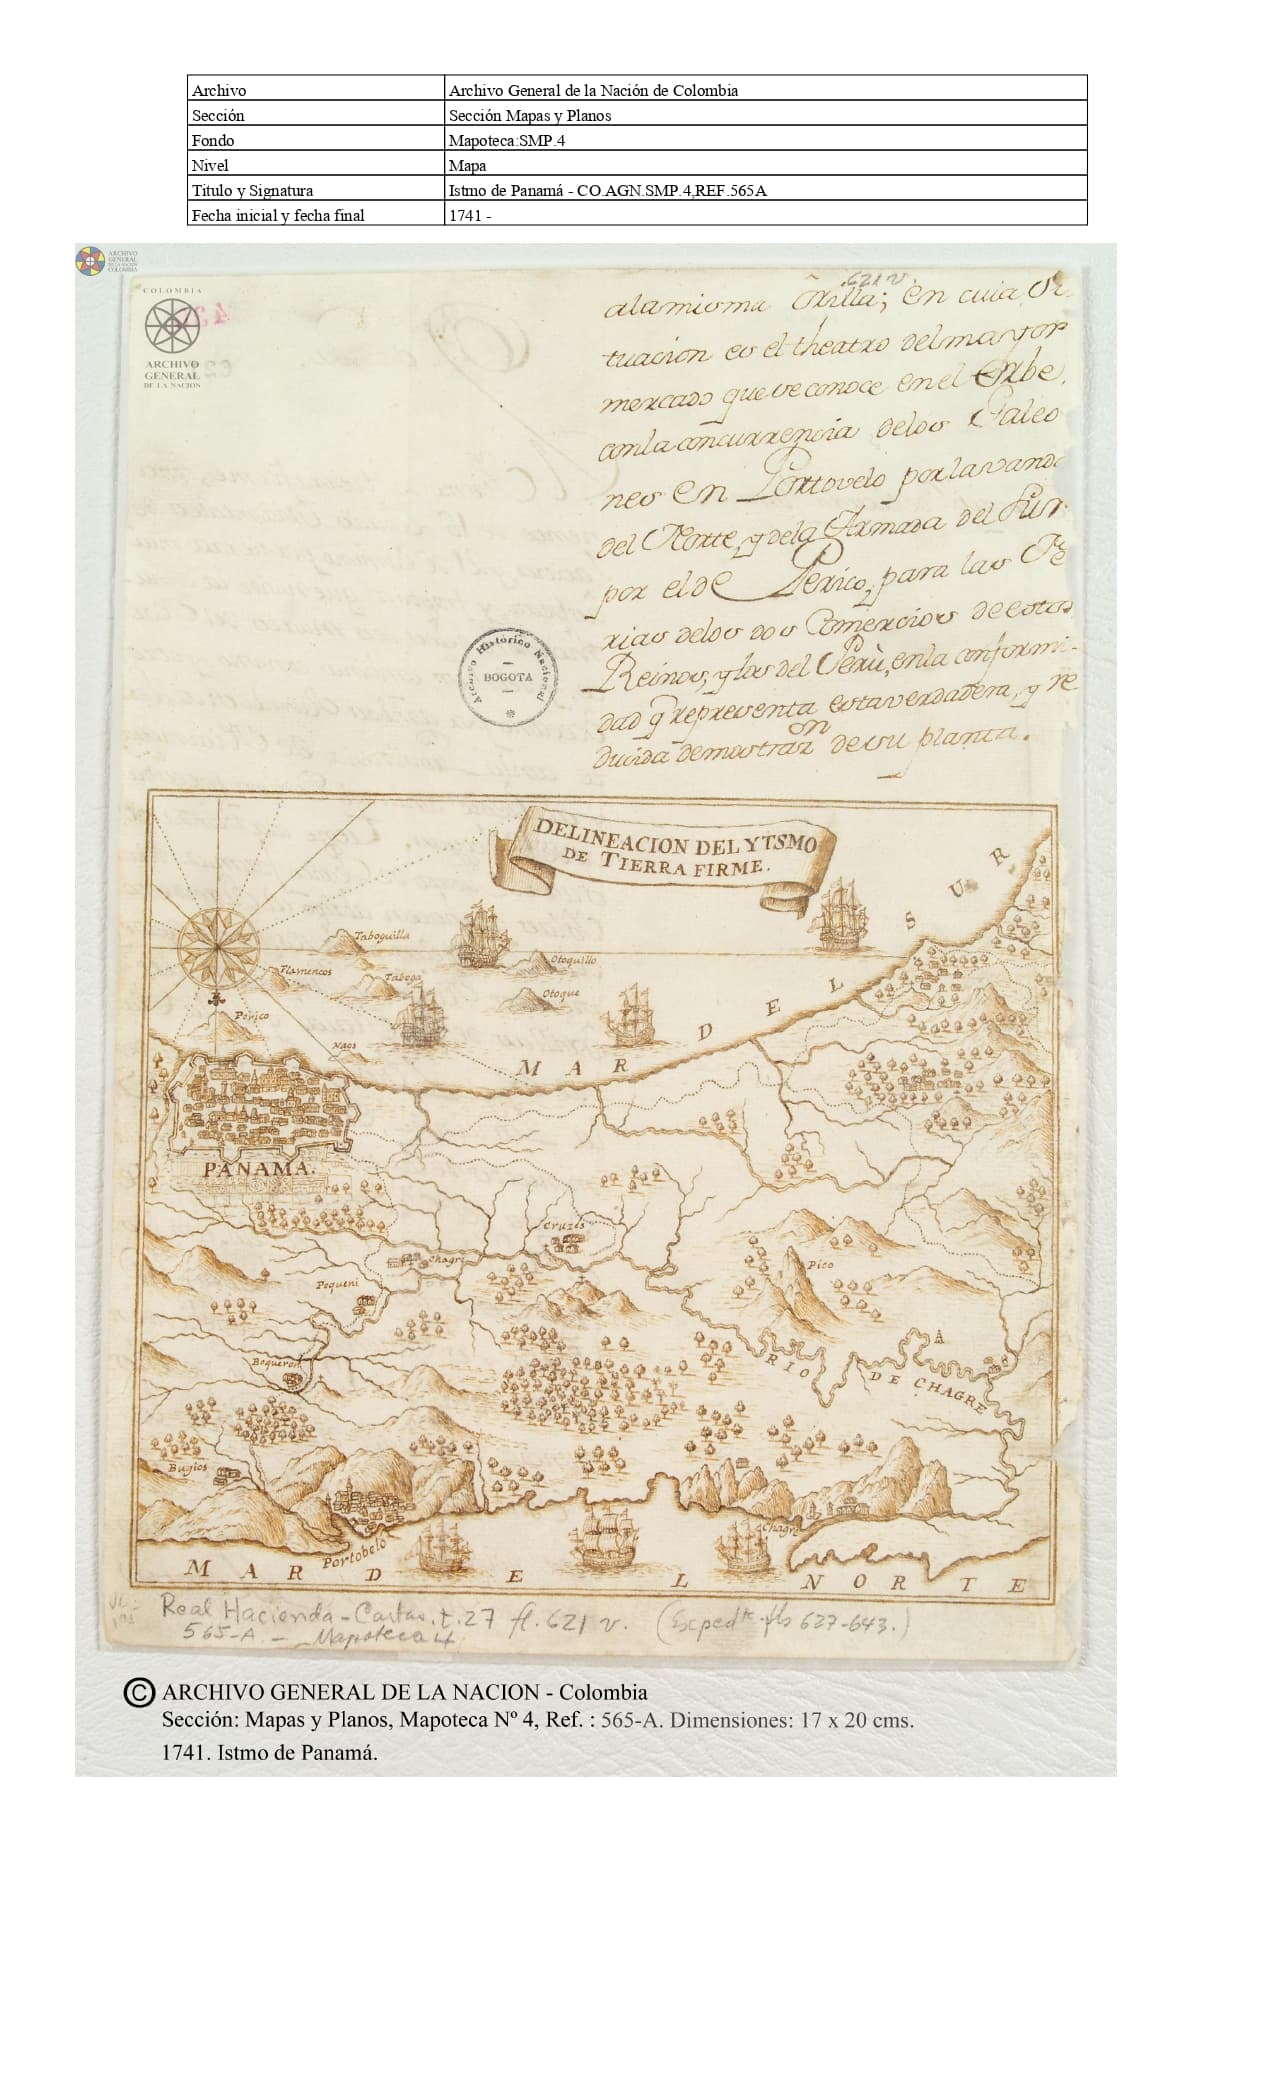 Archivo Archivo General de la Nación de Colombia
Sección Sección Mapas y Planos
Fondo Mapoteca:SMP.4
Nivel Mapa
Titulo y Signatura Istmo de Panamá - CO.AGN.SMP.4,REF.565A
Fecha inicial y fecha final 1741 -
ARCHIVO
GENERAL
DE LA NACIÓN
COLOMBIA
COLOMBIA
ARCHIVO
GENERAL
DE LA NACION
621 v.
alamisma Orilla; en cuia
tuacion es el theatro del mayor
mercado que se conoce en el Orbe,
con la concurrencia delos Galeo
nes en Portovelo por la vanda
del Norte, y dela Armada del Sur
por el de Perico, para las Fe
rias delos dos Comercios de estos
Reinos, y los del Perù, en la conformi-
dad q̃ representa esta verdadera, y re
ducida demostraz.on de su planta.
Archivo Histórico Nacional
BOGOTA
DELINEACION DEL YTSMO
DE TIERRA FIRME.
MAR DEL SUR
Taboguilla
Otoquillo
Flamencos
Taboga
Otoque
Perico
Naos
PANAMA.
Cruzes
Chagre
Pequeni
Pico
Boqueron
RIO DE CHAGRE
A
Bugios
Chagre
Portobelo
MAR DEL NORTE
Real Hacienda - Cartas. t. 27 fl. 621 v. (Expedte fls 627-643.)
565-A - Mapoteca 4
© ARCHIVO GENERAL DE LA NACION - Colombia
Sección: Mapas y Planos, Mapoteca Nº 4, Ref. : 565-A. Dimensiones: 17 x 20 cms.
1741. Istmo de Panamá.